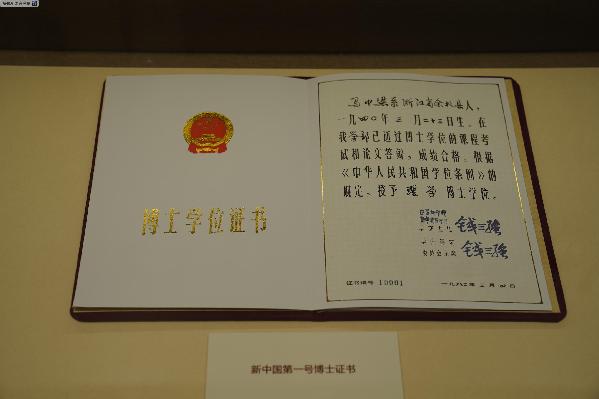 博士学位证书
马中骐系浙江省余杭县人,
一九四〇年二月二十三日生。在
我学部已通过博士学位的课程考
试和论文答辩,成绩合格。根据
《中华人民共和国学位条例》的
规定,授予理学博士学位。
钱三强
钱三强
证书编号 10001
一九八二年三月四日
新中国第一号博士证书